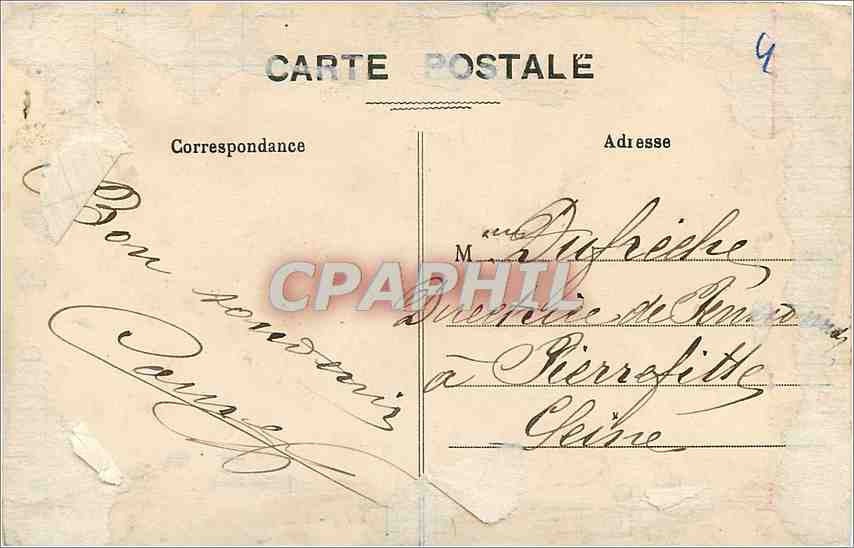 CARTE POSTALE
4
Correspondance
Adresse
Bon
souvenir
Mme Dufrèche
Directrice de
à Pierrefitte
Seine
CPAPHIL